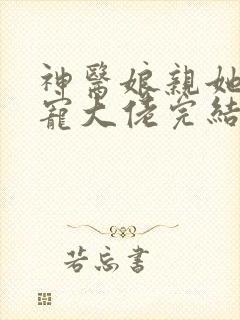 神醫娘親她
寵大佬完結
若忘書